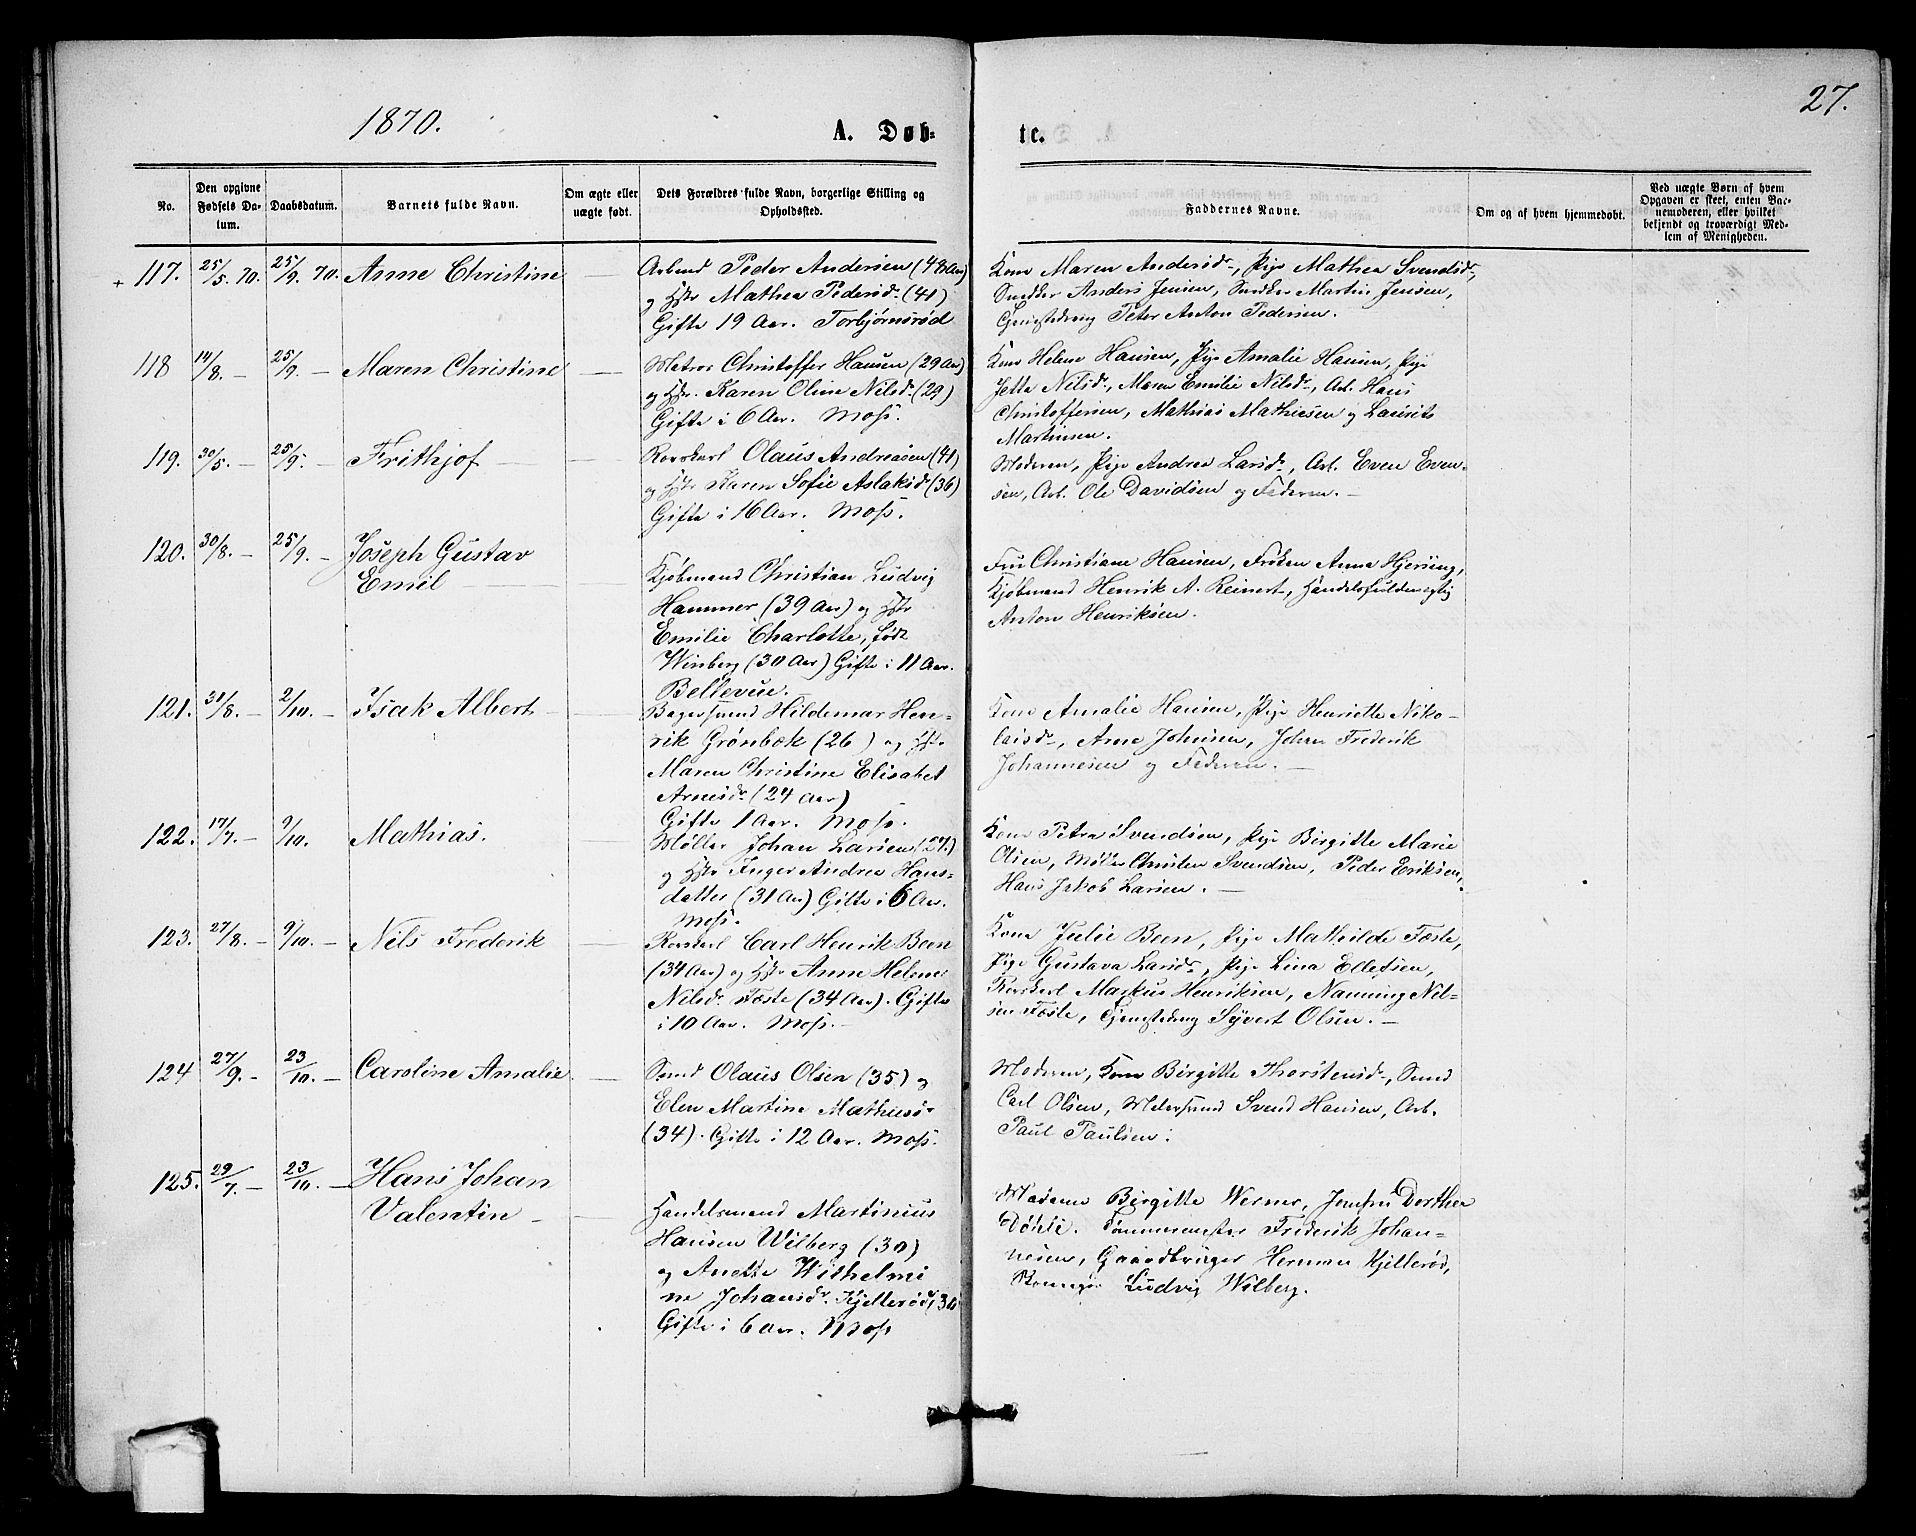 1870.
27.
A. Døb-
te.
No.
Den opgivne Fødsels Da-
tum.
Daabsdatum.
Barnets fulde Navn.
Om ægte eller
uægte født.
Dets Forældres fulde Navn, borgerlige Stilling og
Opholdssted.
Faddernes Navne.
Om og af hvem hjemmedøbt.
Ved uægte Børn af hvem
Opgaven er skeet, enten Bar-
nemoderen, eller hvilket
bekjendt og troværdigt Med-
lem af Menigheden.
+ 117. 25/5. 70. 25/9. 70. Anne Christine —
Arbmd Peder Andersen (48 Aar)
og Hstr Mathea Pedersdr (41)
Gifte 19 Aar. Torbjørnsrød
Kone Maren Andersdr, Pige Mathea Svendsdr,
Snedker Anders Jensen, Snedker Martin Jensen,
Peter Anton Pedersen.
118 14/8. — 25/9. — Maren Christine —
Matros Christoffer Hansen (29 Aar)
og Hstr. Karen Oline Nilsdr (29)
Gifte i 6 Aar. Moss.
Kone Helene Hansen, Pige Amalie Hansen, Pige
Jette Nilsdr, Maren Emilie Nilsdr, Arb. Hans
Christoffersen, Mathias Mathiesen og Laurits
Martinsen.
119. 30/5. — 25/9. — Frithjof —
Rorskarl Olaus Andreasen (41)
og Hstr Karen Sofie Aslaksdr (36)
Gifte i 16 Aar. Moss.
Moderen, Pige Andrea Larsdr, Arb. Even Even-
sen, Arb. Ole Davidsen og Faderen. —
120. 30/8. — 25/9. — Joseph Gustav
Emil —
Kjøbmand Christian Ludvig
Hammer (39 Aar) og Hstr
Emilie Charlotte, født
Winberg (30 Aar) Gifte i 11 Aar.
Bellevue.
Fru Christiane Hansen, Frøken Anna Hjersing,
Kjøbmand Henrik A. Reinert, Handelsfuldmægtig
Anton Henriksen.
121. 31/8. — 2/10. — Isak Albert —
Bagersvend Hildemar Hen-
rik Grønbæk (26) og Hstr.
Maren Christine Elisabet
Arnesdr (24 Aar)
Gifte 1 Aar. Moss.
Kone Amalie Hansen, Pige Henriette Niko-
laisdr, Arne Johnsen, Johan Frederik
Johannesen og Faderen. —
122. 17/7. — 9/10. Mathias.
Møller Johan Larsen (27.)
og Hstr Inger Andrea Hans-
datter (31 Aar) Gifte i 6 Aar.
Moss.
Kone Petra Svendsen, Pige Birgitte Marie
Olsen, Møller Christen Svendsen, Peder Eriksen,
Hans Jakob Larsen. —
123. 27/8. — 9/10. — Nils Frederik —
Rorskarl Carl Henrik Been
(34 Aar) og Hstr Anne Helene
Nilsdr. Føste (34 Aar). Gifte
i 10 Aar. Moss. —
Kone Julie Been, Pige Mathilde Føste,
Pige Gustava Larsdr, Pige Lina Ellefsen,
Rorskarl Markus Henriksen, Nanning Nil-
sen Føste, Syvert Olsen. —
124 27/9. — 23/10. — Caroline Amalie —
Smed Olaus Olsen (35) og
Elen Martine Mathiasdr
(34). Gifte i 12 Aar. Moss.
Moderen, Kone Birgitte Thorstensdr, Smed
Carl Olsen, Svend Hansen, Arb.
Paul Paulsen.
125. 29/7. — 23/10. — Hans Johan
Valentin —
Handelsmand Martinius
Hansen Wilberg (30)
og Anette Wilhelmi
ne Johansdr. Kjellerød, 30
Gifte i 6 Aar. Moss
Madame Birgitte Werner, Jomfru Dorthea
Døhli. Tømmermester Frederik Johan-
nesen, Gaardbruger Herman Kjellerød,
Ludvig Wilberg.